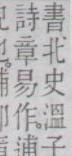 書北史溫子
詩章易作。浦